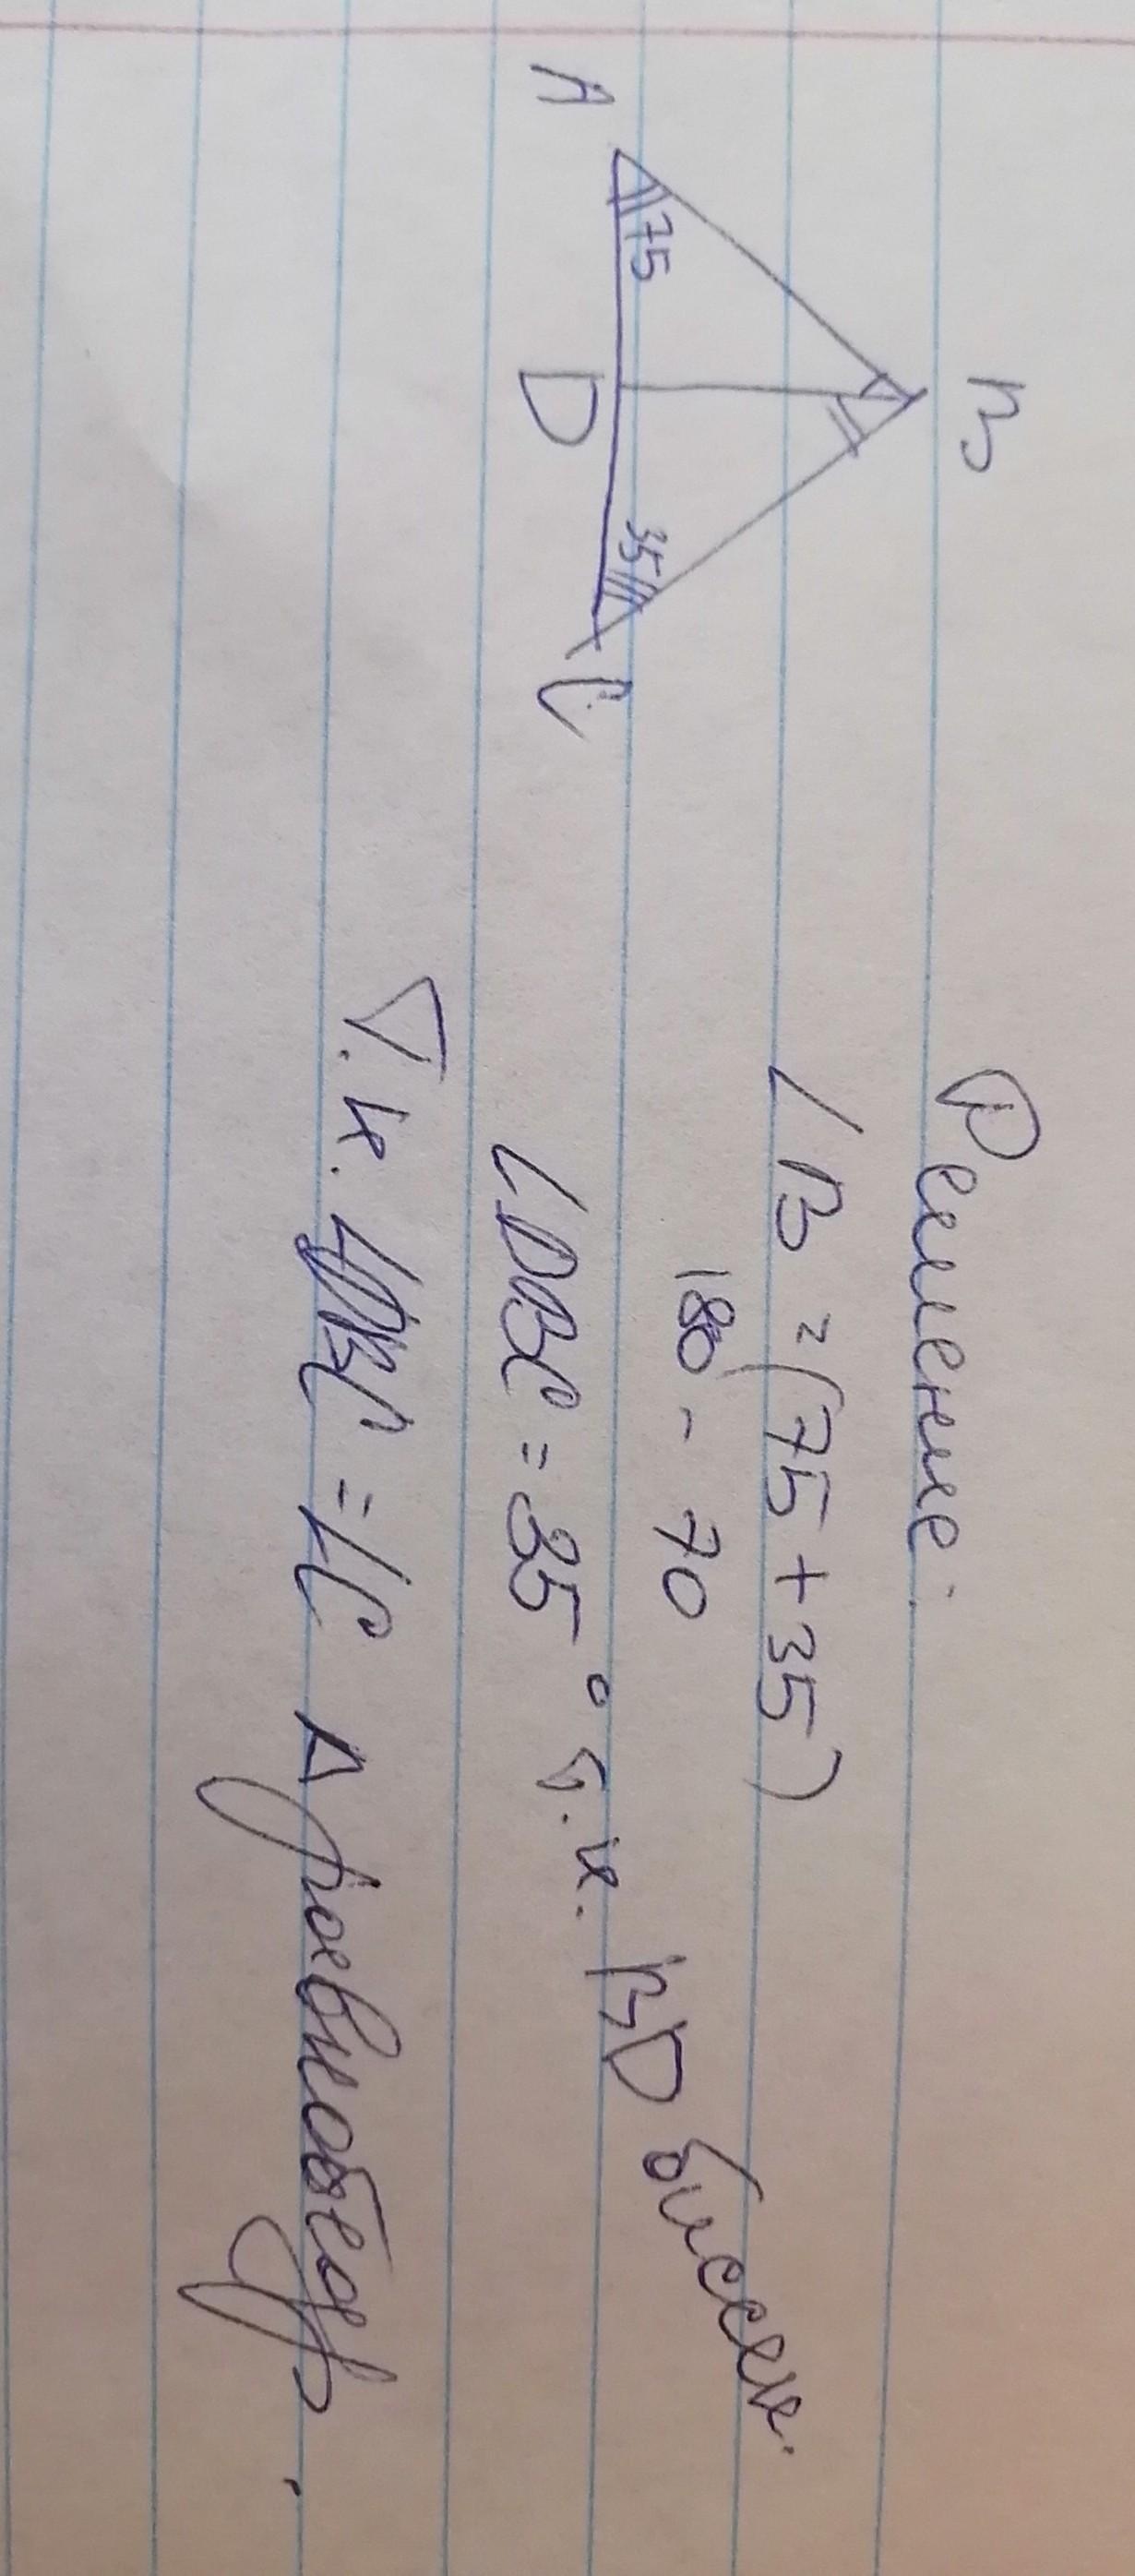 B
A
75
35
C
D
Решение:
∠B = (75 + 35)
180 - 70
∠DBC = 35° т.к. BD биссек.
Т.к. ∠DBC = ∠C Δ равнобедр.